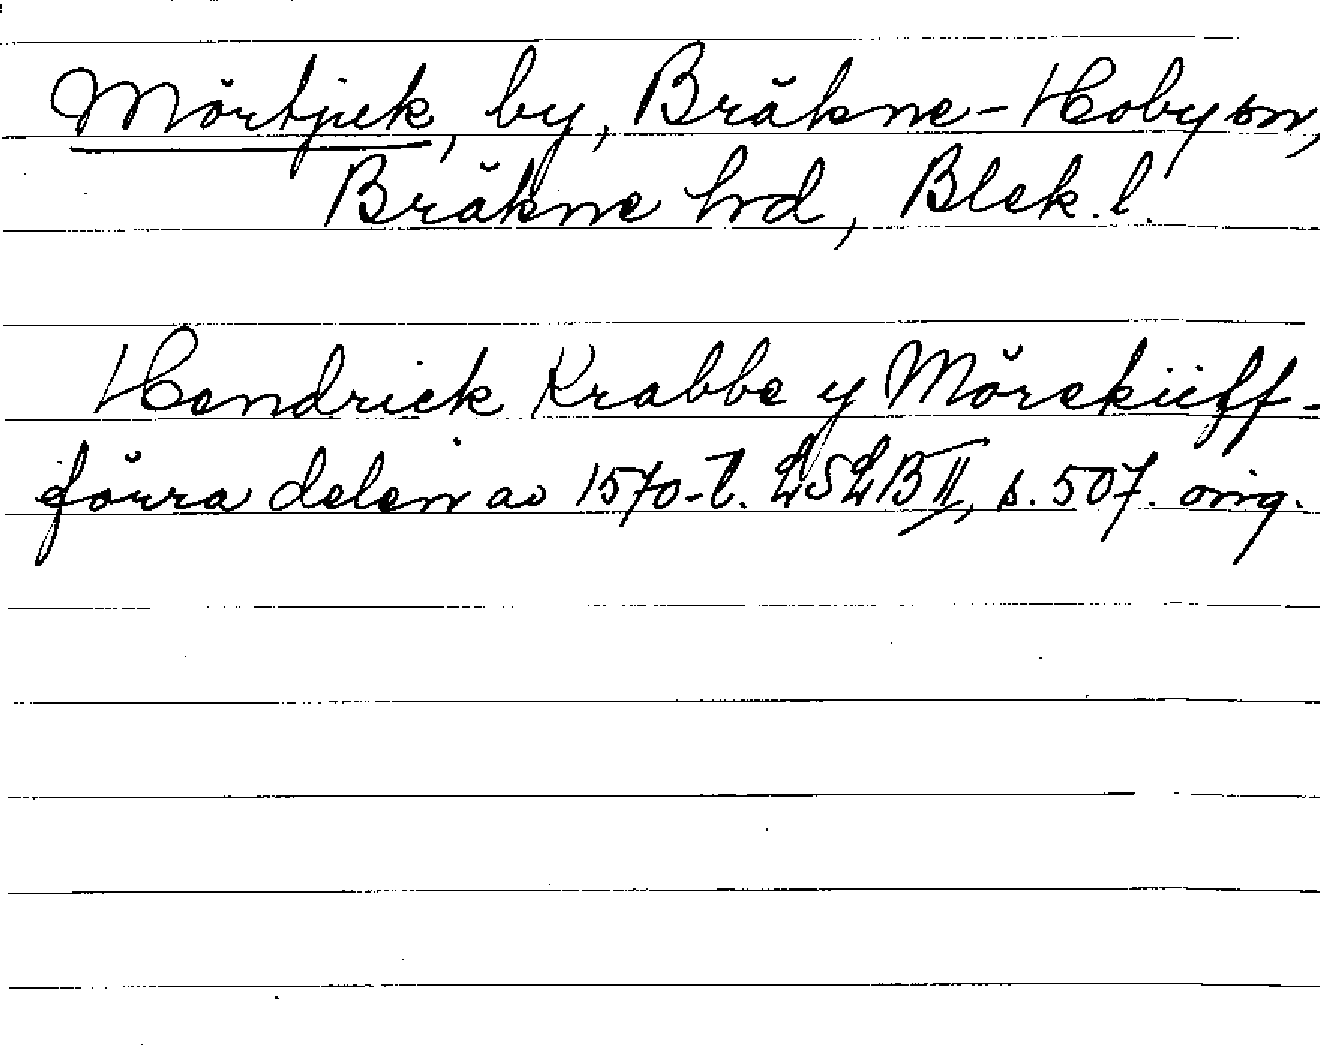 Mörtjuk, by, Bräkne-Hoby sn,
Bräkne hrd, Blek. l.
Hendrick Krabbe y Mörekiüff -
förra delen av 1570-t. LSLB II, s. 507. orig.